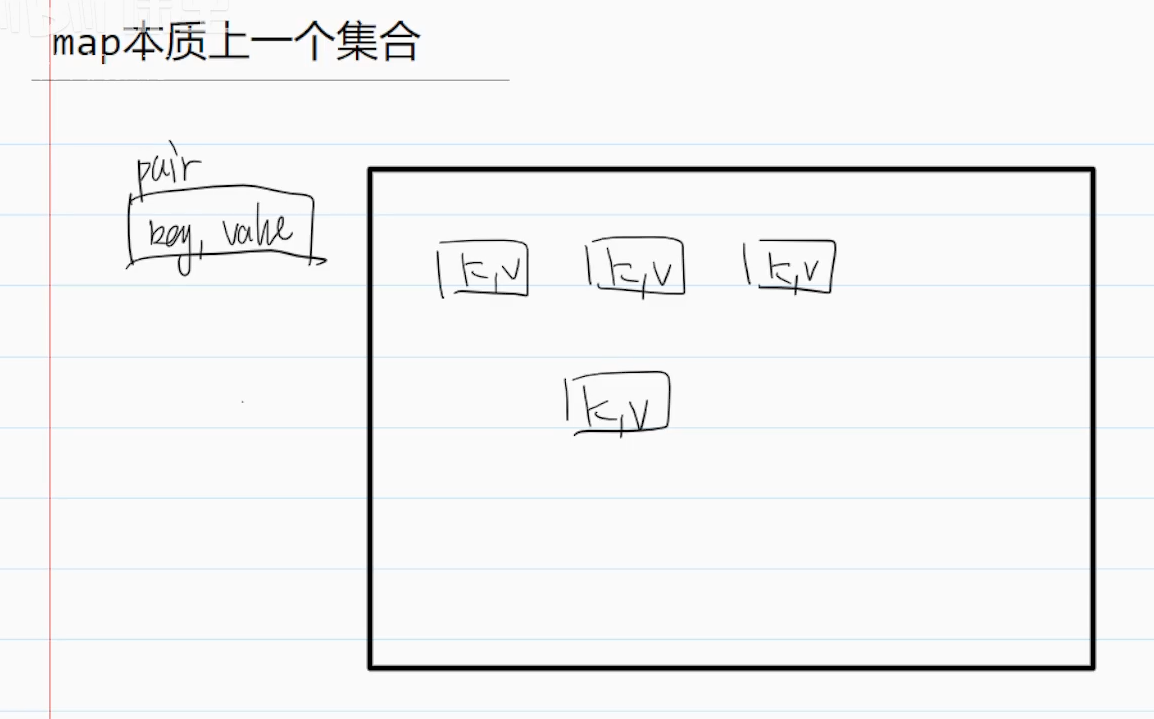 map本质上一个集合
pair
key, value
k,v k,v k,v
k,v